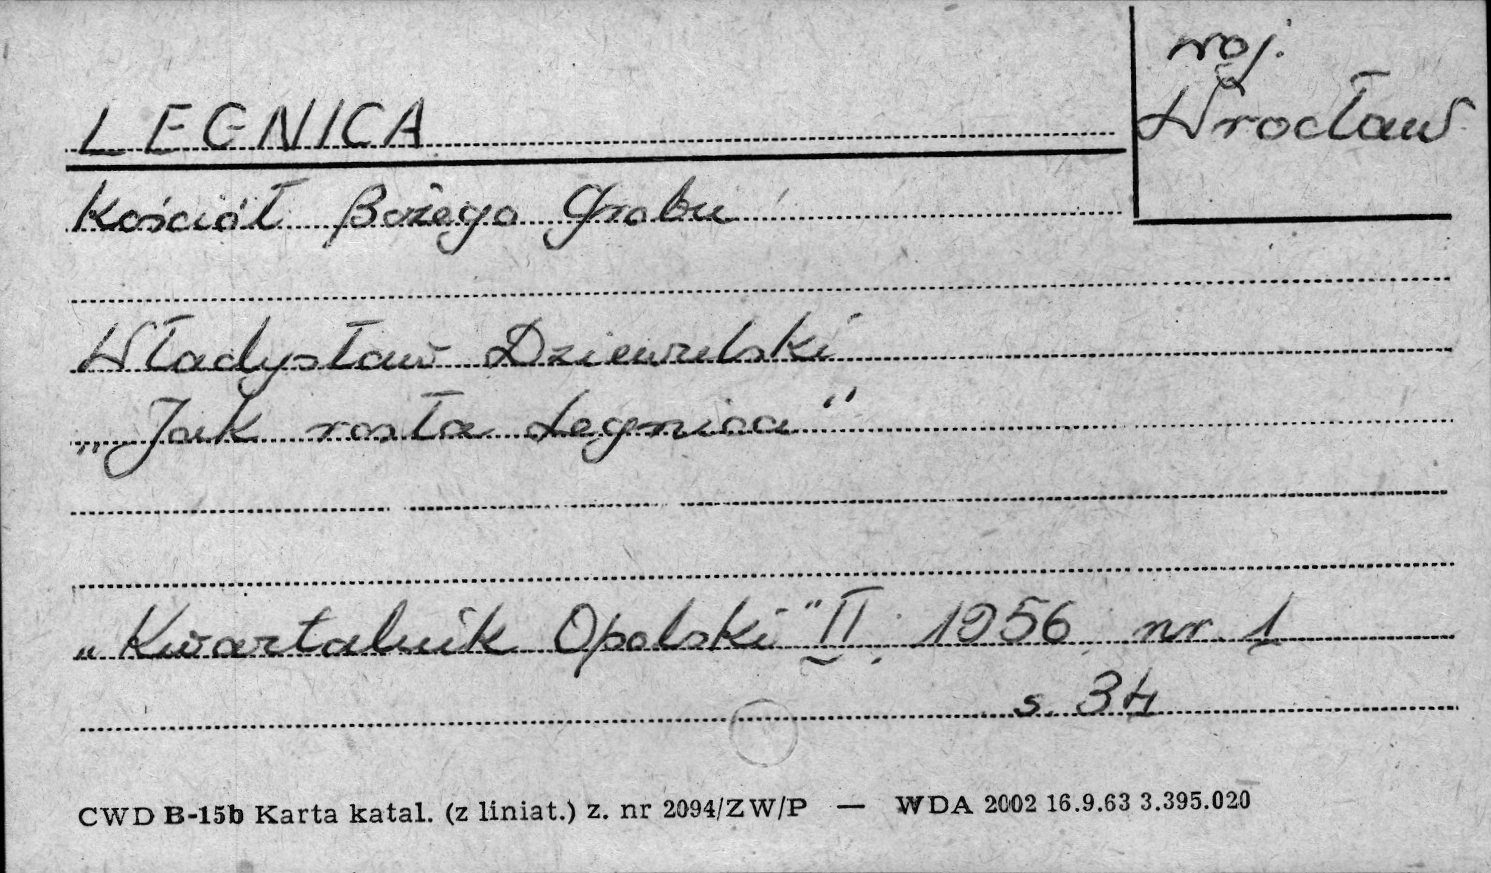 woj.
Wrocław
LEGNICA
Kościół Bożego Grobu
Władysław Dziewulski
„Jak rosła Legnica"
„Kwartalnik Opolski" II. 1956 nr. 1
s. 34
CWD B-15b Karta katal. (z liniat.) z. nr 2094/ZW/P — WDA 2002 16.9.63 3.395.020